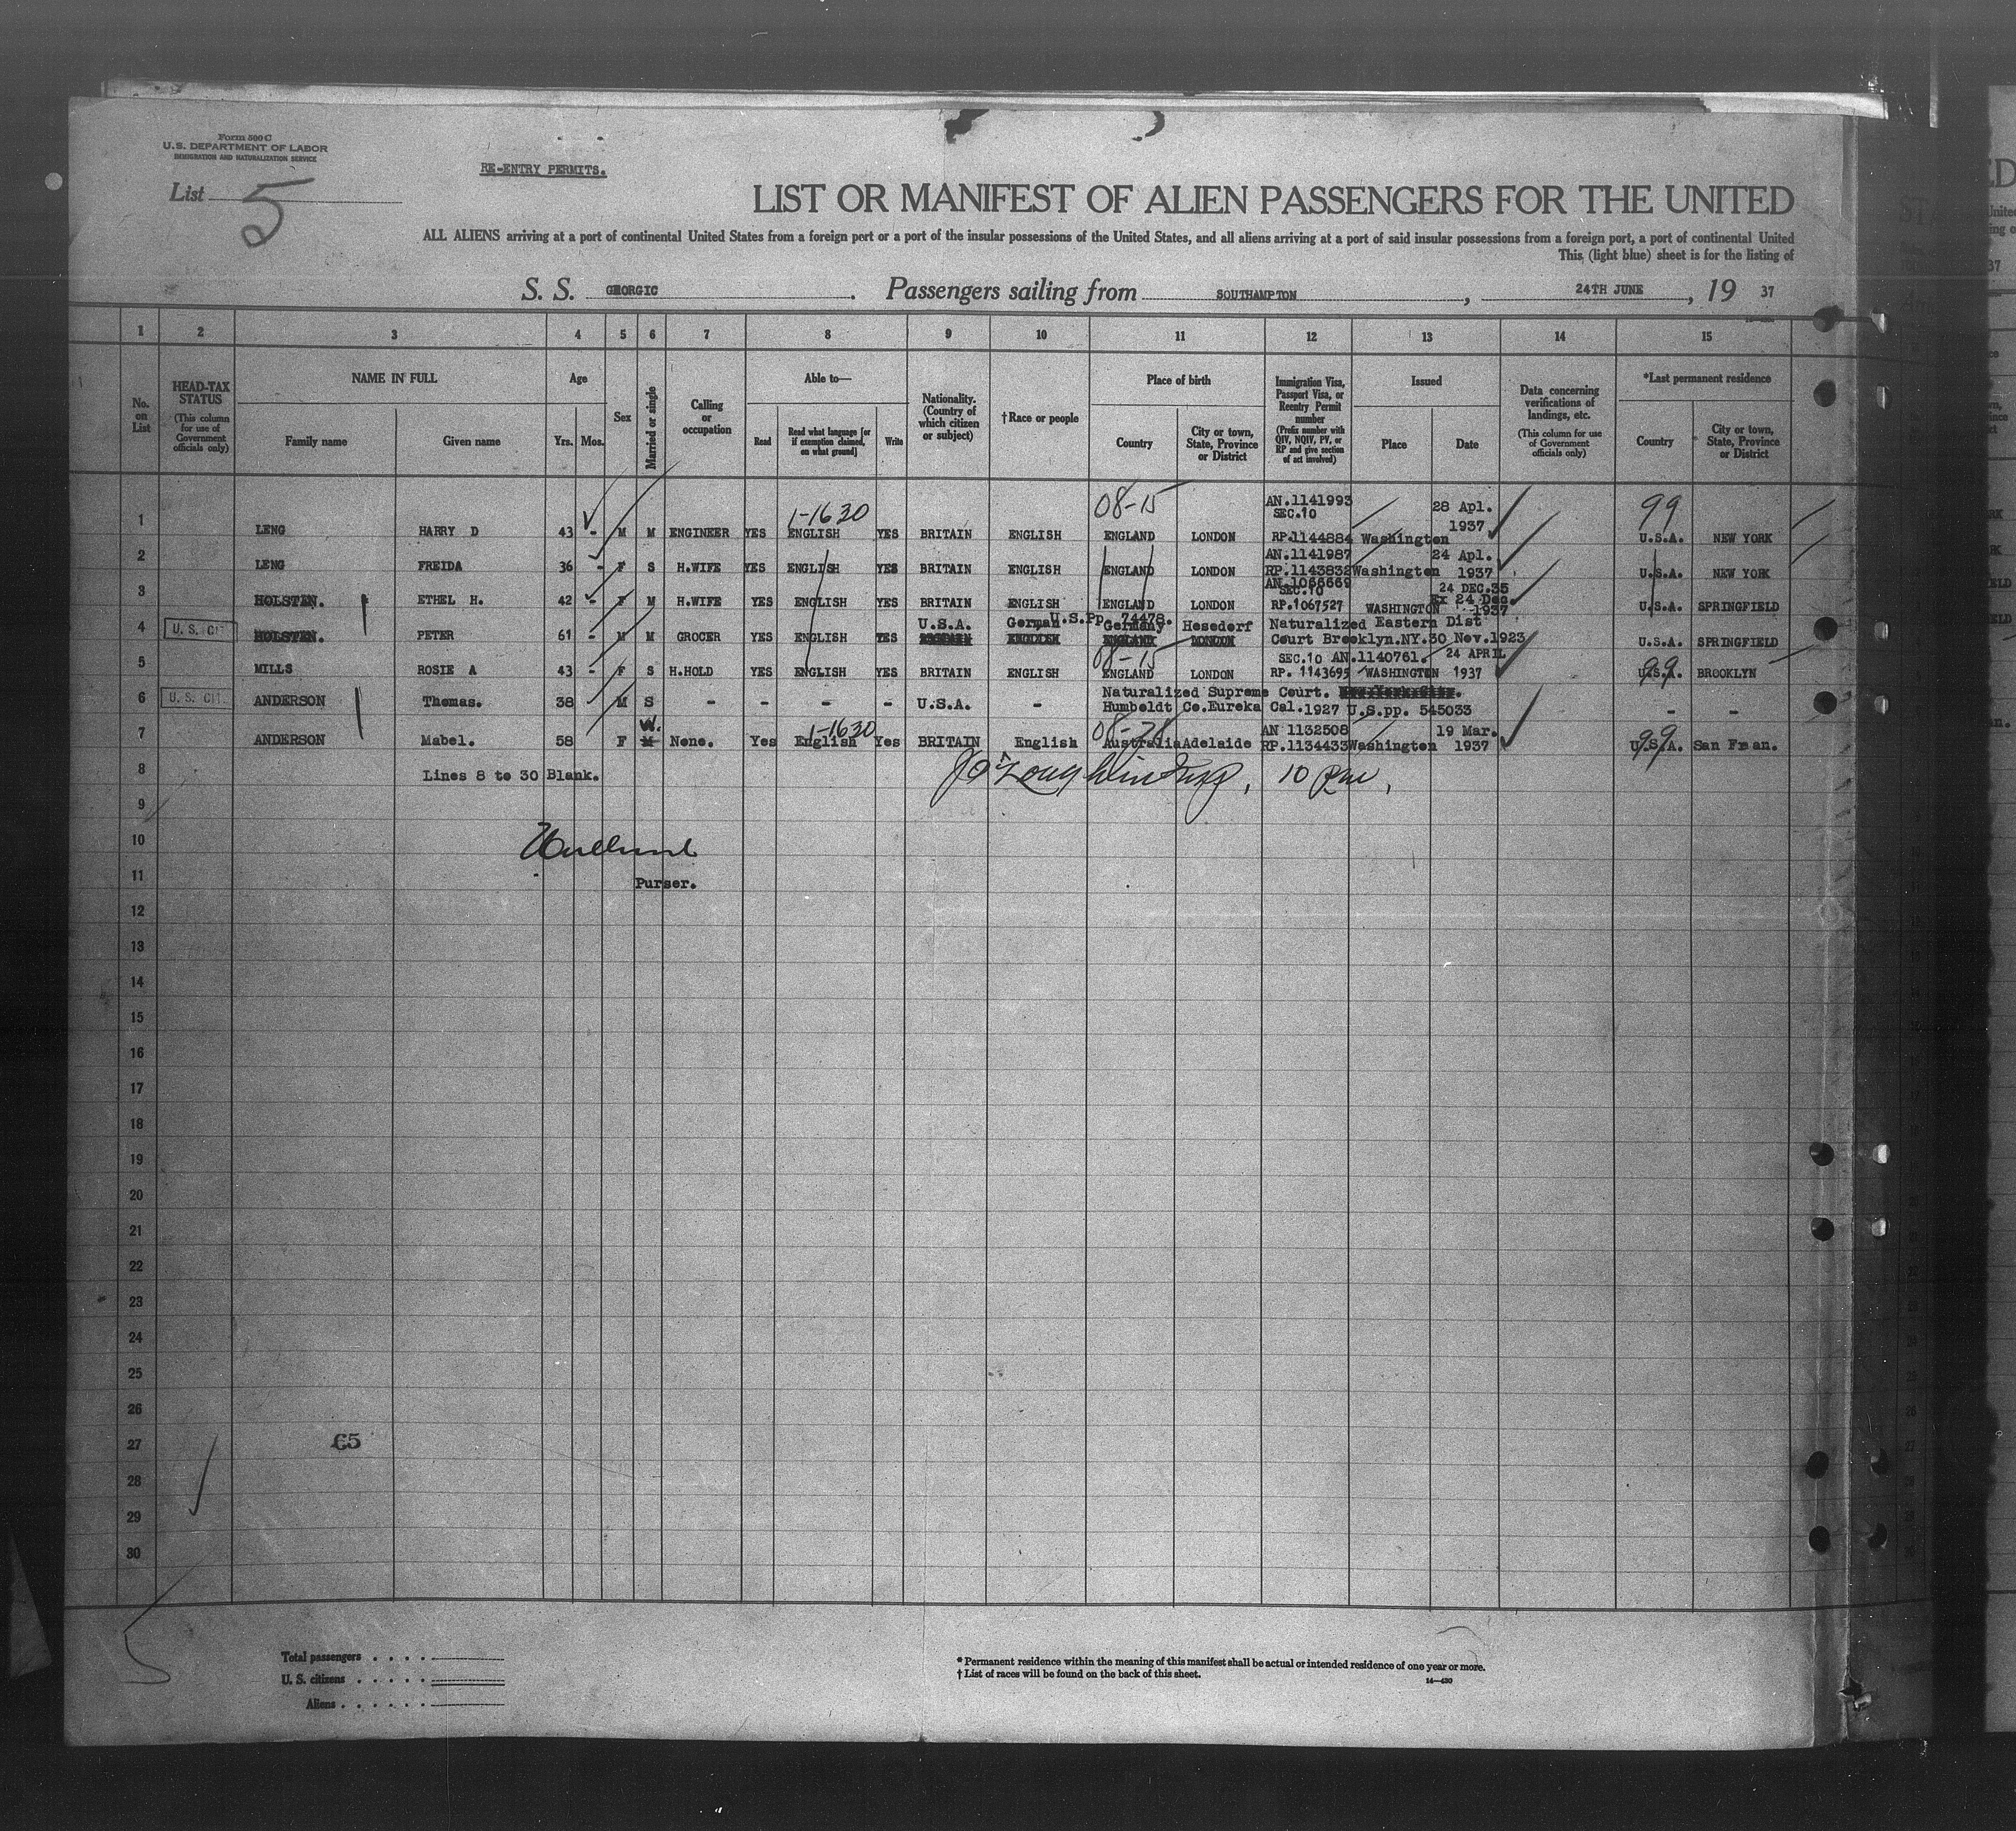 Form 500 C
U.S. DEPARTMENT OF LABOR
IMMIGRATION AND NATURALIZATION SERVICE
RE-ENTRY PERMITS.
List 5
LIST OR MANIFEST OF ALIEN PASSENGERS FOR THE UNITED
ALL ALIENS arriving at a port of continental United States from a foreign port or a port of the insular possessions of the United States, and all aliens arriving at a port of said insular possessions from a foreign port, a port of continental United
This (light blue) sheet is for the listing of
S. S. GEORGIC . Passengers sailing from SOUTHAMPTON , 24TH JUNE , 19 37
1 2 3 4 5 6 7 8 9 10 11 12 13 14 15
No. on List
HEAD-TAX STATUS
(This column for use of Government officials only)
NAME IN FULL
Family name Given name
Age
Yrs. Mos.
Sex
Married or single
Calling or occupation
Able to—
Read
Read what language [or if exemption claimed, on what ground]
Write
Nationality. (Country of which citizen or subject)
†Race or people
Place of birth
Country
City or town, State, Province or District
Immigration Visa, Passport Visa, or Reentry Permit number
(Prefix number with QIV, NQIV, PV, or RP and give section of act involved)
Issued
Place Date
Data concerning verifications of landings, etc.
(This column for use of Government officials only)
*Last permanent residence
Country
City or town, State, Province or District
1-1630 08-15 AN.1141993 SEC.10 28 Apl. 99
1 LENG HARRY D 43 - M M ENGINEER YES ENGLISH YES BRITAIN ENGLISH ENGLAND LONDON RP.1144884 Washington 1937 U.S.A. NEW YORK
AN.1141987 24 Apl.
2 LENG FREIDA 36 - F S H.WIFE YES ENGLISH YES BRITAIN ENGLISH ENGLAND LONDON RP.1143832 Washington 1937 U.S.A. NEW YORK
AN.1066669 SEC.10 24 DEC.35 Ex 24 Dec.
3 HOLSTEN. ETHEL H. 42 - F M H.WIFE YES ENGLISH YES BRITAIN ENGLISH ENGLAND LONDON RP.1067527 WASHINGTON 1937 U.S.A. SPRINGFIELD
U.S.Pp. 74478.
U. S. CIT. U.S.A. German Germany Hesedorf Naturalized Eastern Dist
4 HOLSTEN. PETER 61 - M M GROCER YES ENGLISH YES BRITAIN ENGLISH ENGLAND LONDON Court Brooklyn.NY.30 Nov.1923 U.S.A. SPRINGFIELD
08-15 SEC.10 AN.1140761. 24 APRIL 99
5 MILLS ROSIE A 43 - F S H.HOLD YES ENGLISH YES BRITAIN ENGLISH ENGLAND LONDON RP. 1143695 WASHINGTON 1937 U.S.A. BROOKLYN
U. S. CIT. Naturalized Supreme Court.
6 ANDERSON Thomas. 38 M S - - - - U.S.A. - Humboldt Co.Eureka Cal.1927 U.S.pp. 545033 - -
W. 1-1630 AN 1132508 19 Mar. 99
7 ANDERSON Mabel. 58 F M None. Yes English Yes BRITAIN English Australia Adelaide RP.1134433 Washington 1937 U.S.A. San Fran.
8 Lines 8 to 30 Blank.
9
10
11 Purser.
12
13
14
15
16
17
18
19
20
21
22
23
24
25
26
27 £5
28
29
30
Total passengers . . . .
U. S. citizens . . . . .
Aliens . . . . . .
* Permanent residence within the meaning of this manifest shall be actual or intended residence of one year or more.
† List of races will be found on the back of this sheet.
14—430